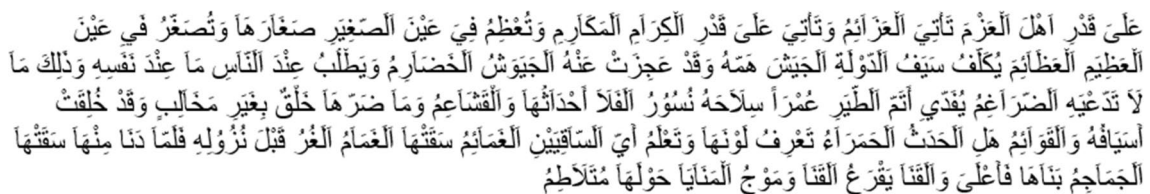 عَلَىَ قَدْرِ اَهْلَ اَلْعَزْمَ تَأتِيَ اَلْعَزَائِمُ وَتَأتِيَ عَلَىَ قَدْرِ اَلْكِرَاَمِ اَلمَكَاَرِمِ وَتُعْظِمُ فِيَ عَيْنَ اَلْصّغِيَرِ صَغَاَرَهَاَ وَتُصَغّرُ فيِ عَيْنَ
اَلْعَظِيَمِ اَلْعَظَاَئِمَ يُكَلّفُ سَيَفُ اَلْدّوْلَةِ اَلْجَيَشَ هَمّهُ وَقَدْ عَجِزَتْ عَنْهُ اَلْجَيَوَشُ اَلْخَضَاَرِمُ وَيَطْلُبُ عِنْدَ اَلْنّاَسِ مَا عِنْدَ نَفَسِهِ وَذَلِكَ مَاَ
لَاَ تَدّعَيَهِ اَلضّرَاَغِمُ يُفَدّيِ أتَمّ اَلْطّيَرِ عُمْرَاً سِلَاحَهُ نُسُوُرُ اَلفَلَاَ أحْدَاَثُهَاَ وَاَلْقَشَاَعِمُ وَمَاَ ضَرّهَاَ خَلْقٌ بِغَيَرِ مَخَاَلِبٍ وَقَدْ خُلِقَتْ
أسَيَافُهُ وَاَلْقَوَاَئِمُ هَلِ اَلْحَدَثُ اَلْحَمرَاَءُ تَعرِفُ لَوْنَهَاَ وَتَعْلَمُ أيّ اَلْسّاَقِيَيْنِ اَلْغَمَاَئِمُ سَقَتْهَاَ اَلْغَمَاَمُ اَلْغُرُ قَبْلَ نُزُوُلِهِ فَلَمّاَ دَنَاَ مِنْهَاَ سَقَتْهَاَ
اَلْجَمَاَجِمُ بَنَاَهَاَ فَأعْلَىَ وَاَلْقَنَاَ يَقْرَعُ اَلْقَنَاَ وَمَوْجُ اَلْمَنَاَيَاَ حَوْلَهَاَ مُتَلَاَطِمُ